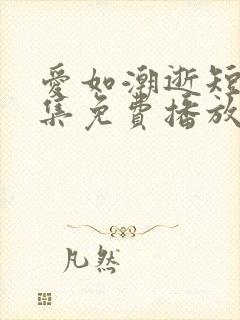 愛如潮逝短
集免費播放
凡然